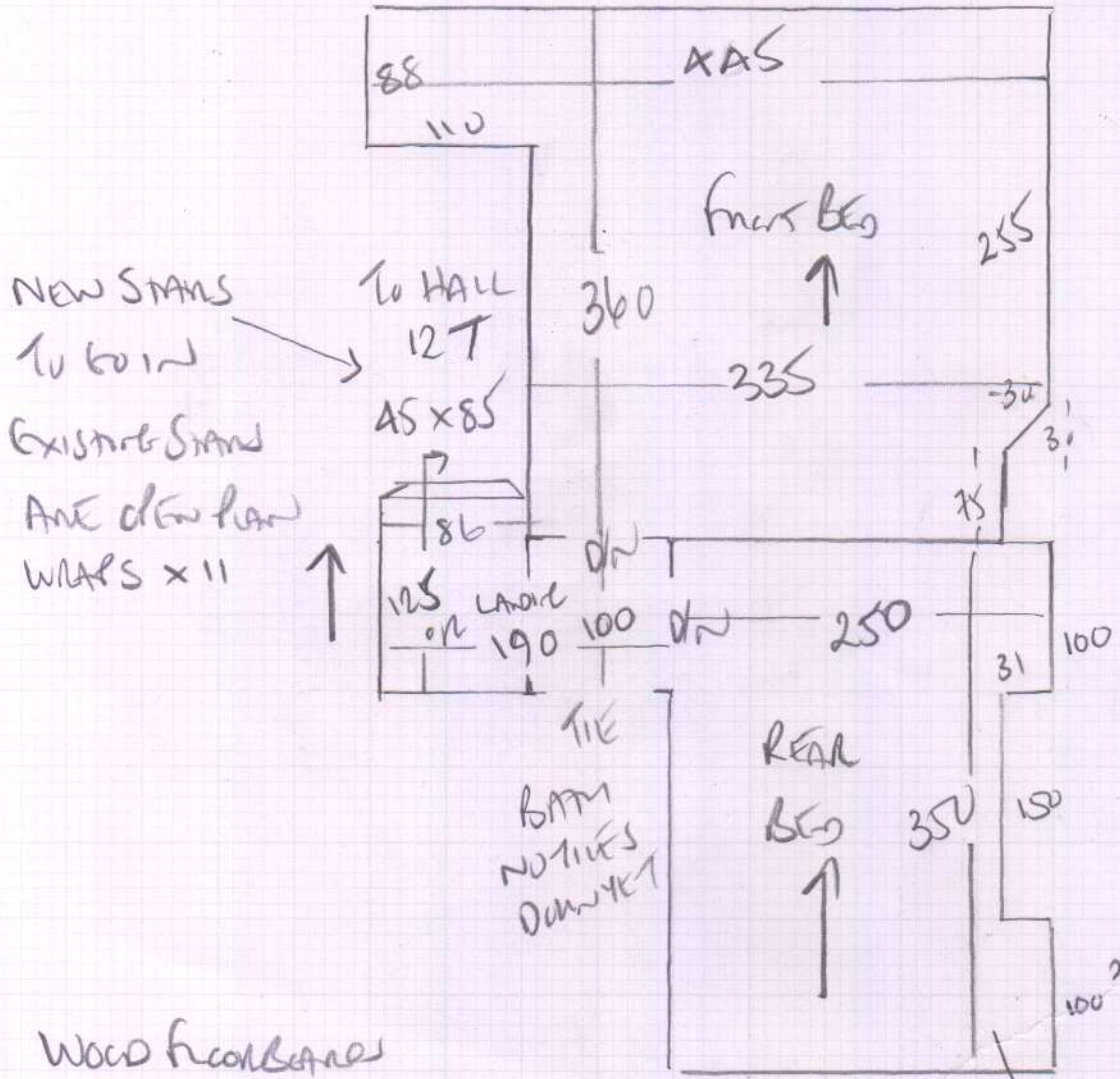 88
445
110
FRONT BED
255
NEW STAIRS
TO GO IN
EXISTING STAIRS
ARE OPEN PLAN
WRAPS x 11
TO HALL
12 T
45 x 85
360
335
30
31
75
86
D/N
125
LANDING
190
100
D/N
250
100
31
TILE
BATH
NO TILES
DOWN YET
REAR
BED
350
150
100
WOOD FLOORBOARDS